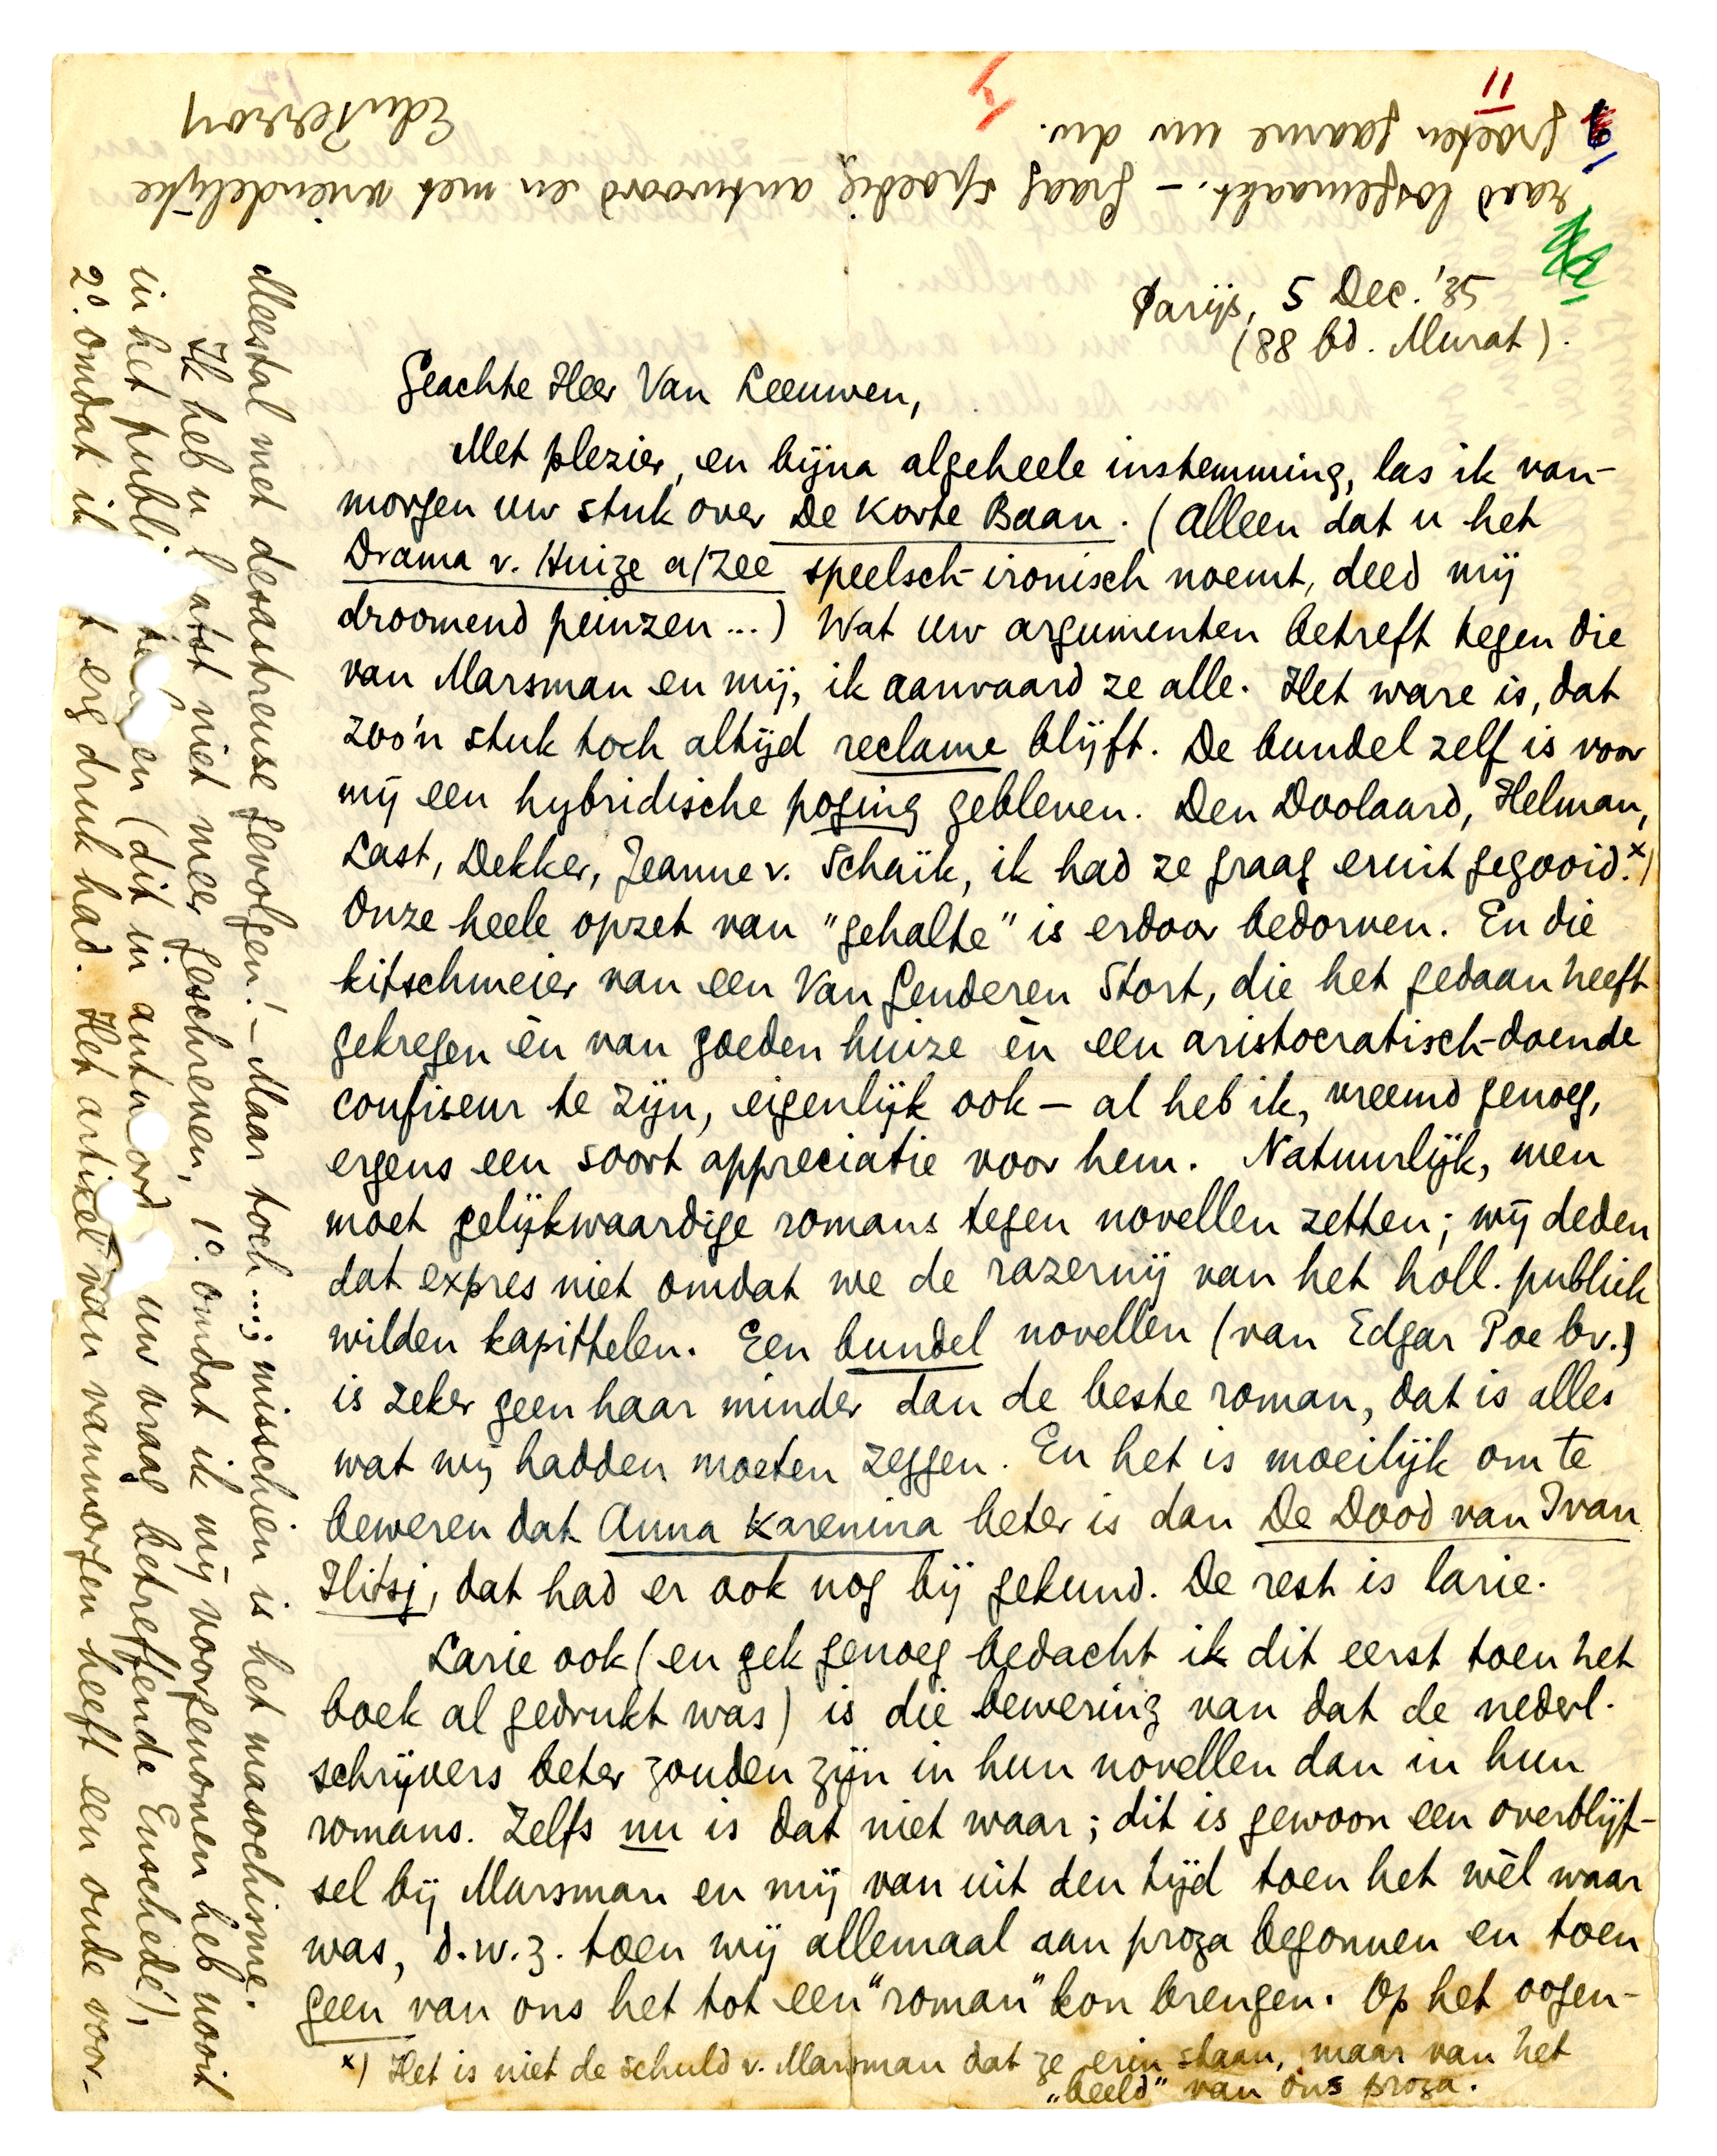 11
Parijs, 5 Dec. '35
(88 bd. Murat).
Geachte Heer Van Leeuwen,
Met plezier, en bijna algeheele instemming, las ik van-
morgen uw stuk over De Korte Baan. (Alleen dat u het
Drama v. Huize a/Zee speelsch-ironisch noemt, deed mij
droomend peinzen...) Wat uw argumenten betreft tegen die
van Marsman en mij, ik aanvaard ze alle. Het ware is, dat
zoo'n stuk toch altijd reclame blijft. De bundel zelf is voor
mij een hybridische poging gebleven. Den Doolaard, Helman,
Last, Dekker, Jeanne v. Schaik, ik had ze graag eruit gegooid.x)
Onze heele opzet van "gehalte" is erdoor bedorven. En die
kitschmeier van een Van Genderen Stort, die het gedaan heeft
gekregen èn van goeden huize èn een aristocratisch-doende
confiseur te zijn, eigenlijk ook — al heb ik, vreemd genoeg,
ergens een soort appreciatie voor hem. Natuurlijk, men
moet gelijkwaardige romans tegen novellen zetten; wij deden
dat expres niet omdat we de razernij van het holl. publiek
wilden kapittelen. Een bundel novellen (van Edgar Poe bv.)
is zeker geen haar minder dan de beste roman, dat is alles
wat wij hadden moeten zeggen. En het is moeilijk om te
beweren dat Anna Karenina beter is dan De Dood van Ivan
Ilitsj, dat had er ook nog bij gekund. De rest is larie.
Larie ook (en gek genoeg bedacht ik dit eerst toen het
boek al gedrukt was) is die bewering van dat de nederl.
schrijvers beter zouden zijn in hun novellen dan in hun
romans. Zelfs nu is dat niet waar; dit is gewoon een overblijf-
sel bij Marsman en mij van uit den tijd toen het wèl waar
was, d.w.z. toen wij allemaal aan proza begonnen en toen
geen van ons het tot een "roman" kon brengen. Op het oogen-
x) Het is niet de schuld v. Marsman dat ze erin staan, maar van het
"beeld" van ons proza.
Meestal met desastreuse gevolgen! — Maar toch...; misschien is het masochisme.
Ik heb u laatst niet meer geschreven, 1o. omdat ik mij voorgenomen heb nooit
in het publi en (dit in antwoord uw vraag betreffende Enschedé),
2o. omdat ik t erg druk had. Het artikel van vanmorgen heeft een oude voor-
raad losgemaakt. — Graag spoedig antwoord en met vriendelijke
groeten gaarne uw dw.
EduPerron